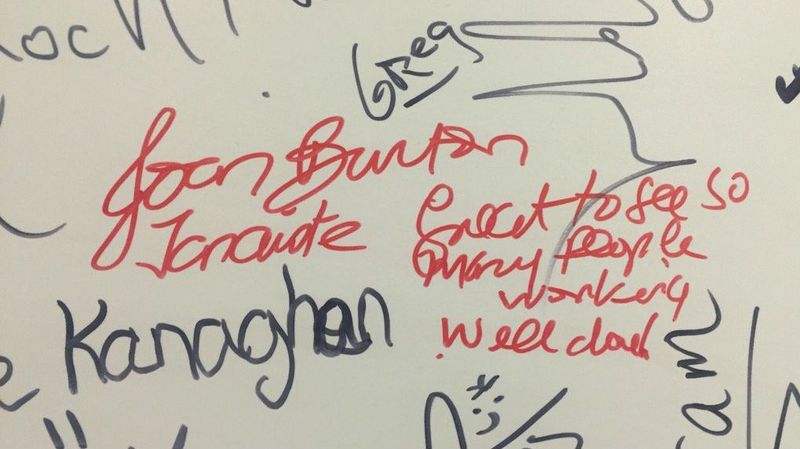 Greg
Joan Burton
Tanaiste
Great to see so
many people
working
Well done
Kanaghan
am